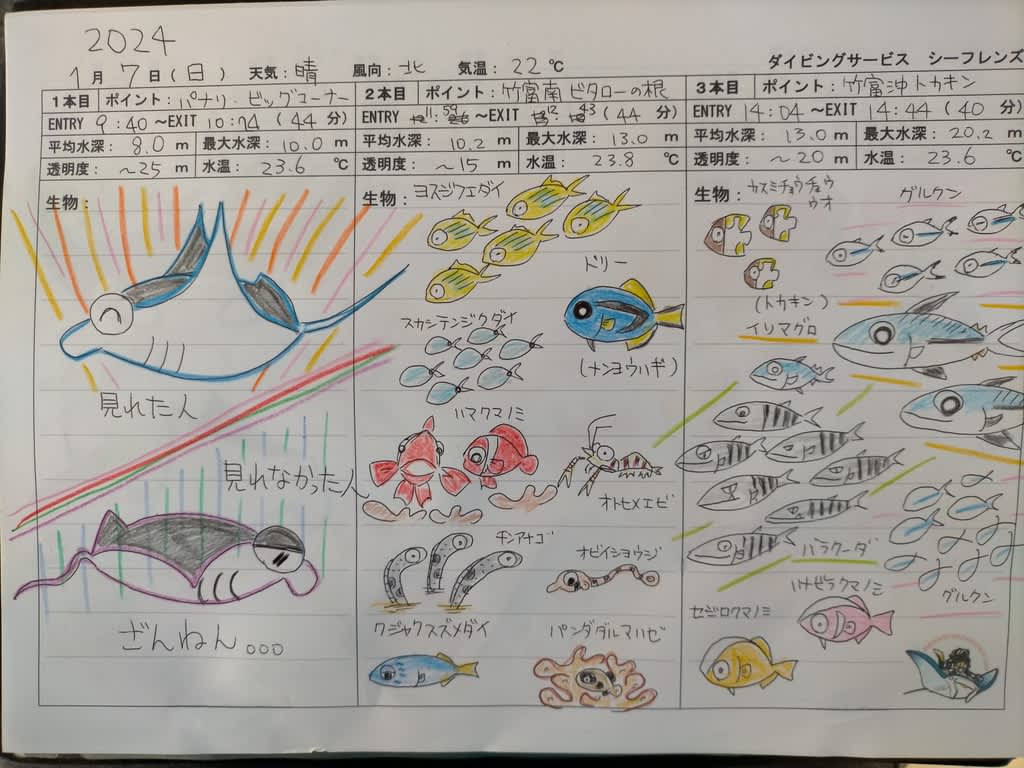 2024
1月 7日(日) 天気:晴 風向:北 気温:22℃
ダイビングサービス シーフレンズ
1本目 ポイント:パナリ・ビッグコーナー
ENTRY 9:40 ~EXIT (44分)
平均水深: 8.0 m 最大水深: 10.0 m
透明度: ~25 m 水温: 23.6 ℃
生物:
見れた人
見れなかった人
ざんねん。。。
2本目 ポイント:竹富南ビタローの根
ENTRY 11:59 ~EXIT 12:43 (44分)
平均水深: 10.2 m 最大水深: 13.0 m
透明度: ~15 m 水温: 23.8 ℃
生物:
ヨスジフエダイ
ドリー
(ナンヨウハギ)
スカシテンジクダイ
ハマクマノミ
オトヒメエビ
チンアナゴ
オビイショウジ
クジャクスズメダイ
パンダダルマハゼ
3本目 ポイント:竹富沖トカキン
ENTRY 14:04 ~EXIT 14:44 (40分)
平均水深: 13.0 m 最大水深: 20.2 m
透明度: ~20 m 水温: 23.6 ℃
生物:
カスミチョウチョウ
ウオ
グルクン
(トカキン)
イソマグロ
バラクーダ
グルクン
ハナビラクマノミ
セジロクマノミ